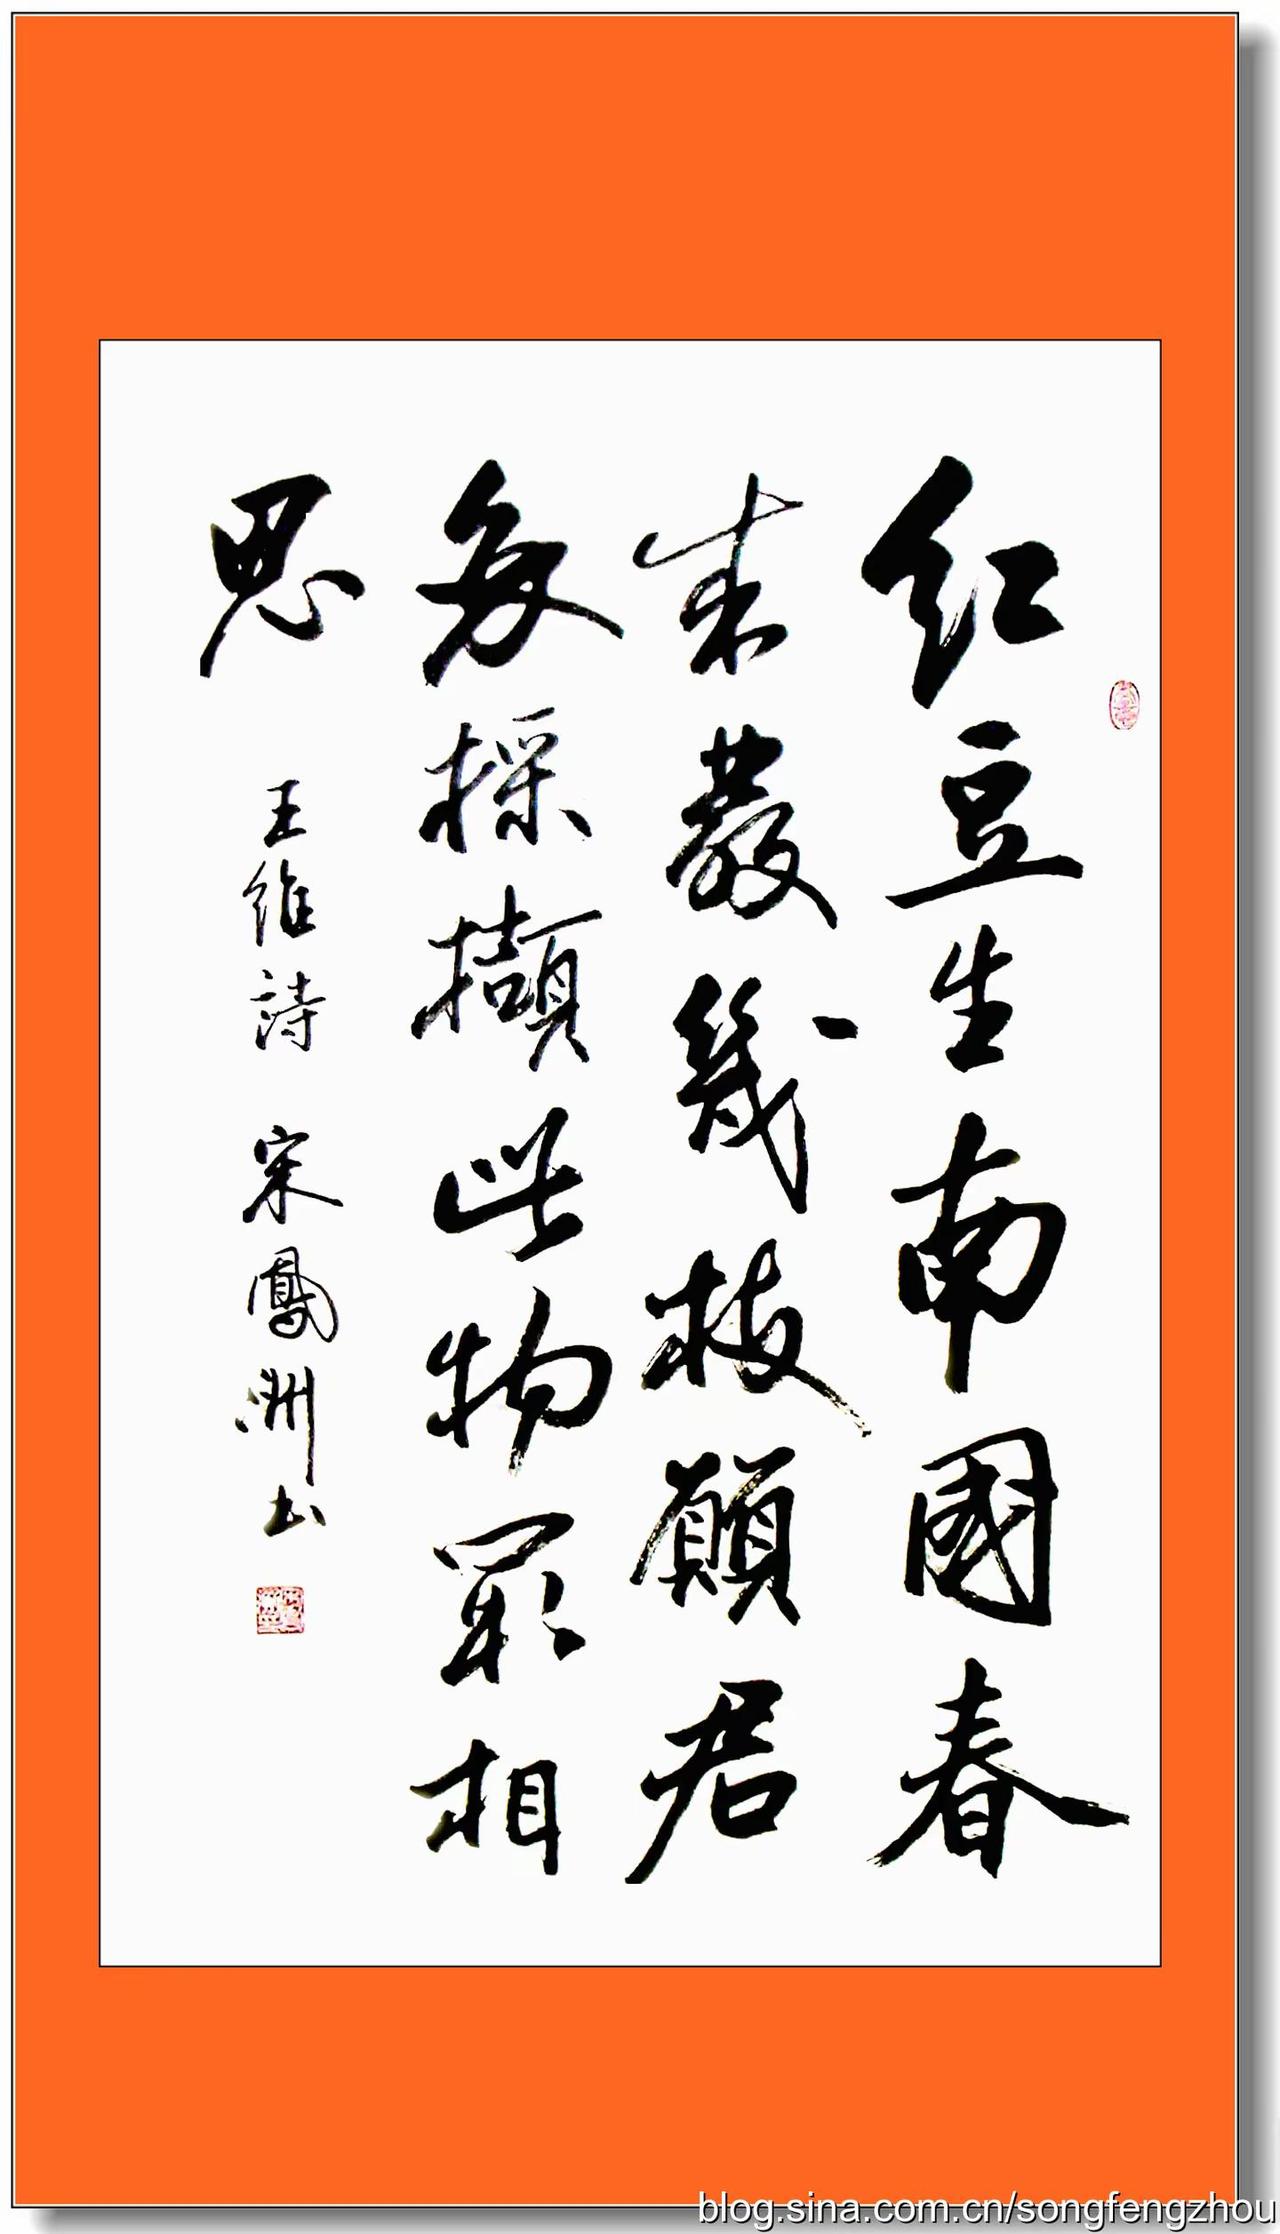 红豆生南國春
来發幾枝願君
多採擷此物最相
思
王维詩 宋鳳洲书
blog.sina.com.cn/songfengzhou